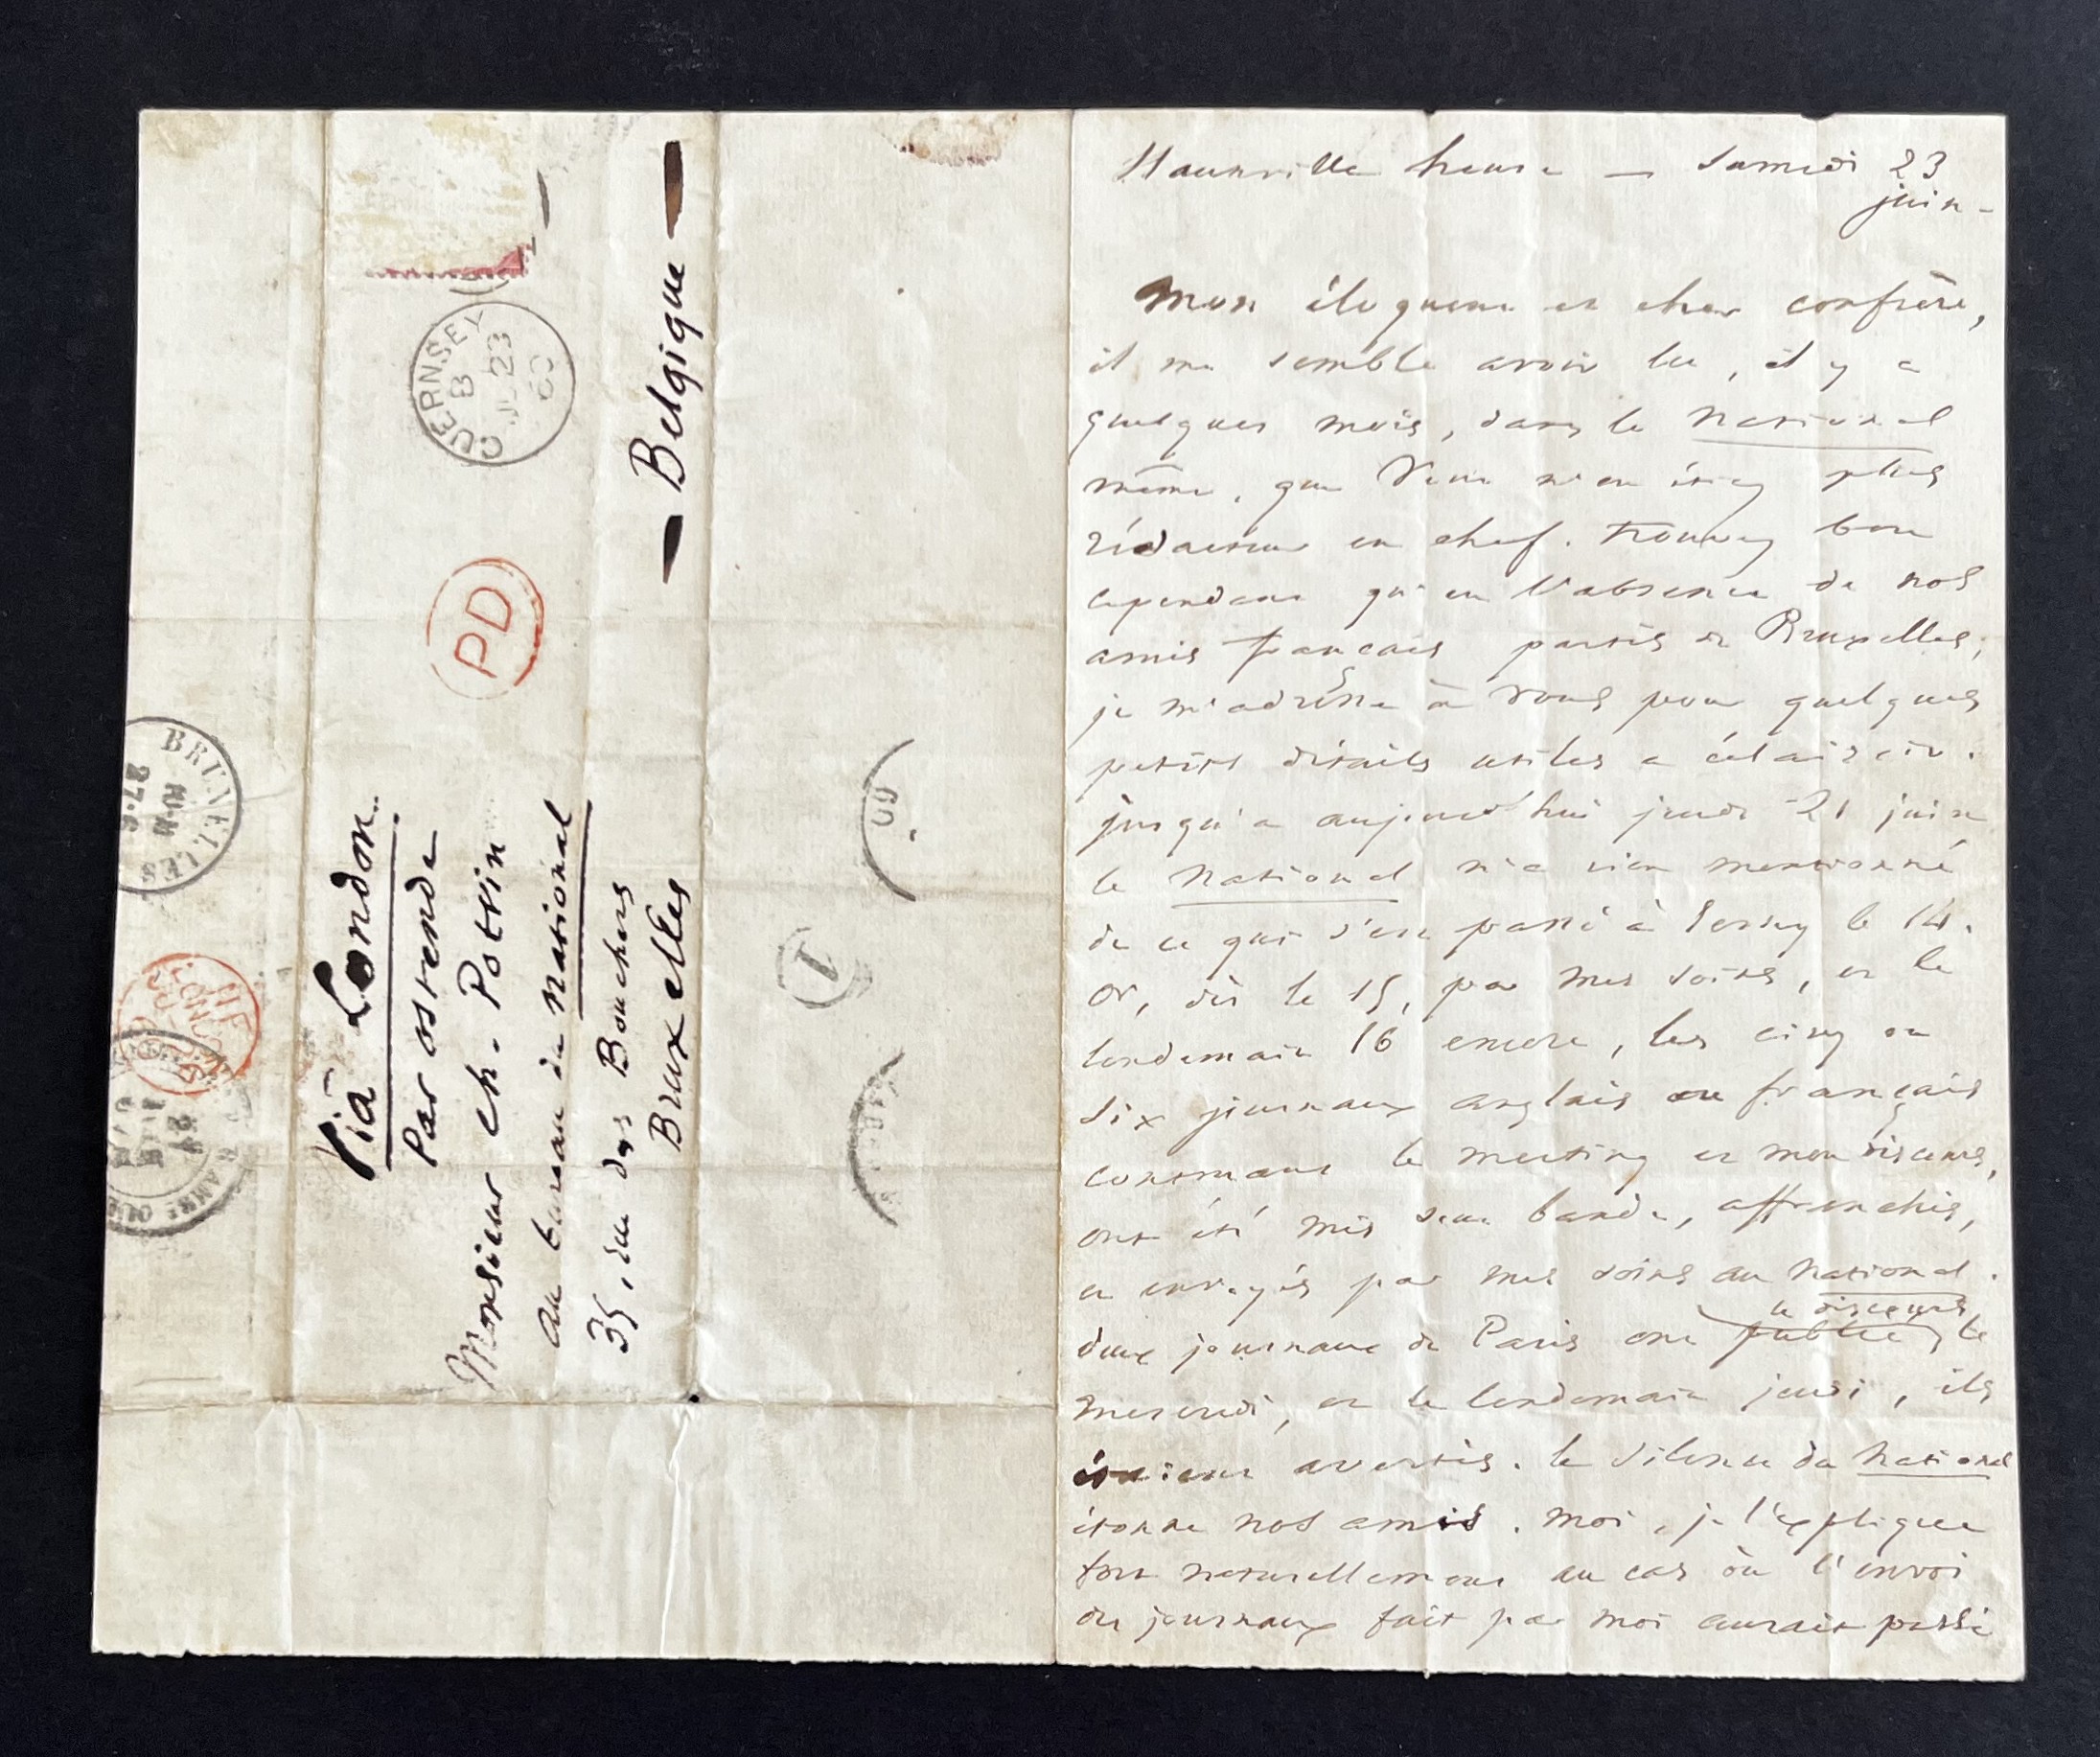 Via London
Par ostende
Monsieur Ch. Potvin
au bureau du National
35, rue des Bouchers
Bruxelles
— Belgique —
GUERNSEY
B
JU 23
60
PD
BRUXELLES
27·6
1
60
Hauteville house — Samedi 23
juin -
Mon éloquent et cher confrère,
il me semble avoir lu, il y a
quelques mois, dans le National
même, que vous n'en étiez plus
rédacteur en chef. trouvez bon
cependant qu'en l'absence de nos
amis français partis de Bruxelles,
je m'adresse à vous pour quelques
petits détails utiles a éclaircir.
jusqu'a aujourd'hui jeudi 21 juin
le National n'a rien mentionné
de ce qui s'est passé à Jersey le 14.
Or, dès le 15, par mes soins, et le
lendemain 16 encore, les cinq ou
six journaux anglais ou français
contenant le meeting et mon discours,
ont été mis sous bande, affranchis,
et envoyés par mes soins au National.
le discours
deux journaux de Paris ont publié le
mercredi, et le lendemain jeudi, ils
étaient avertis. le silence du National
étonne nos amis. moi, je l'explique
fort naturellement au cas où l'envoi
des journaux fait par moi aurait passé